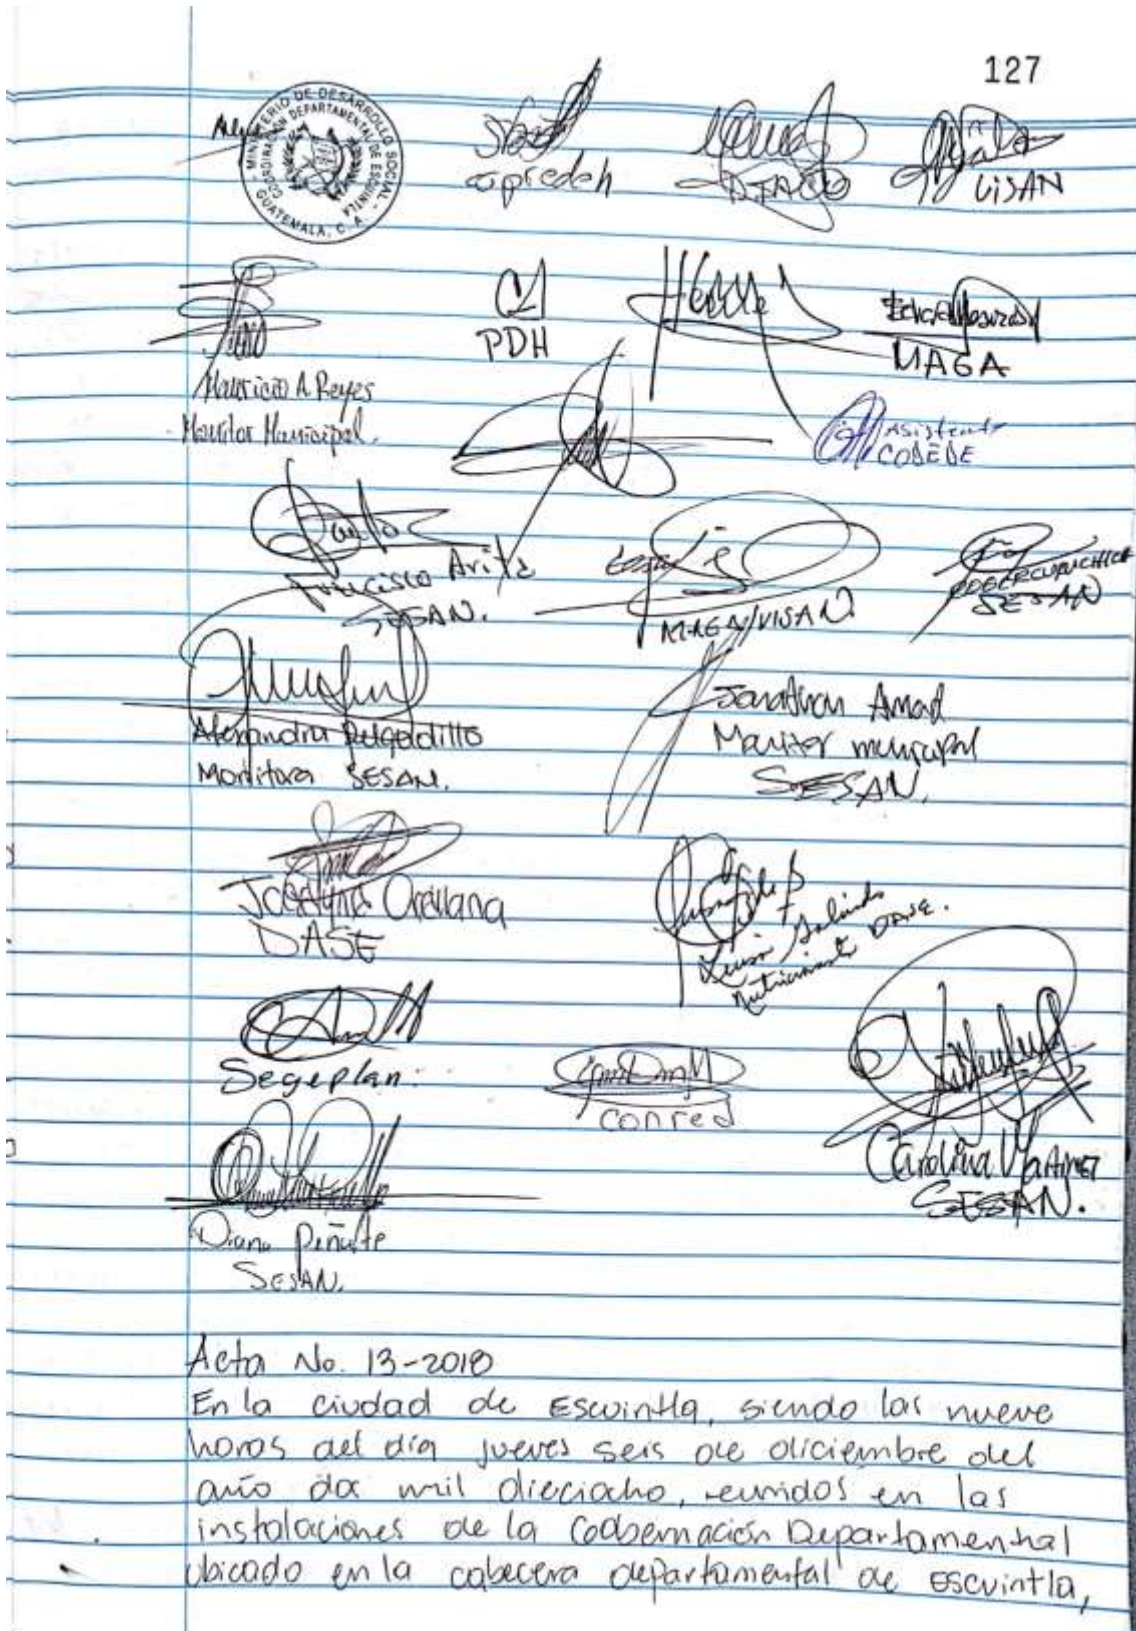 127
MINISTERIO DE DESARROLLO SOCIAL -
COORDINACIÓN DEPARTAMENTAL DE ESCUINTLA
GUATEMALA, C. A.
copredeh
DIACO
VISAN
PDH
MAGA
Mauricio A Reyes
Monitor Municipal.
Asistente
CODEDE
Francisco Arita
SESAN.
MAGA/VISAN.
SESAN
Alexandra Delgadillo
Monitora SESAN.
Jonathan Amad
Monitor municipal
SESAN.
Jocelyne Orellana
DASE
Luisa Galindo
Nutricionista DASE.
Segeplan.
conred
Carolina Martinez
SESAN.
Diana Peñate
SESAN.
Acta No. 13-2018
En la ciudad de Escuintla, siendo las nueve
horas del día jueves seis de diciembre del
año dos mil dieciocho, reunidos en las
instalaciones de la Gobernación Departamental
ubicado en la cabecera departamental de Escuintla,